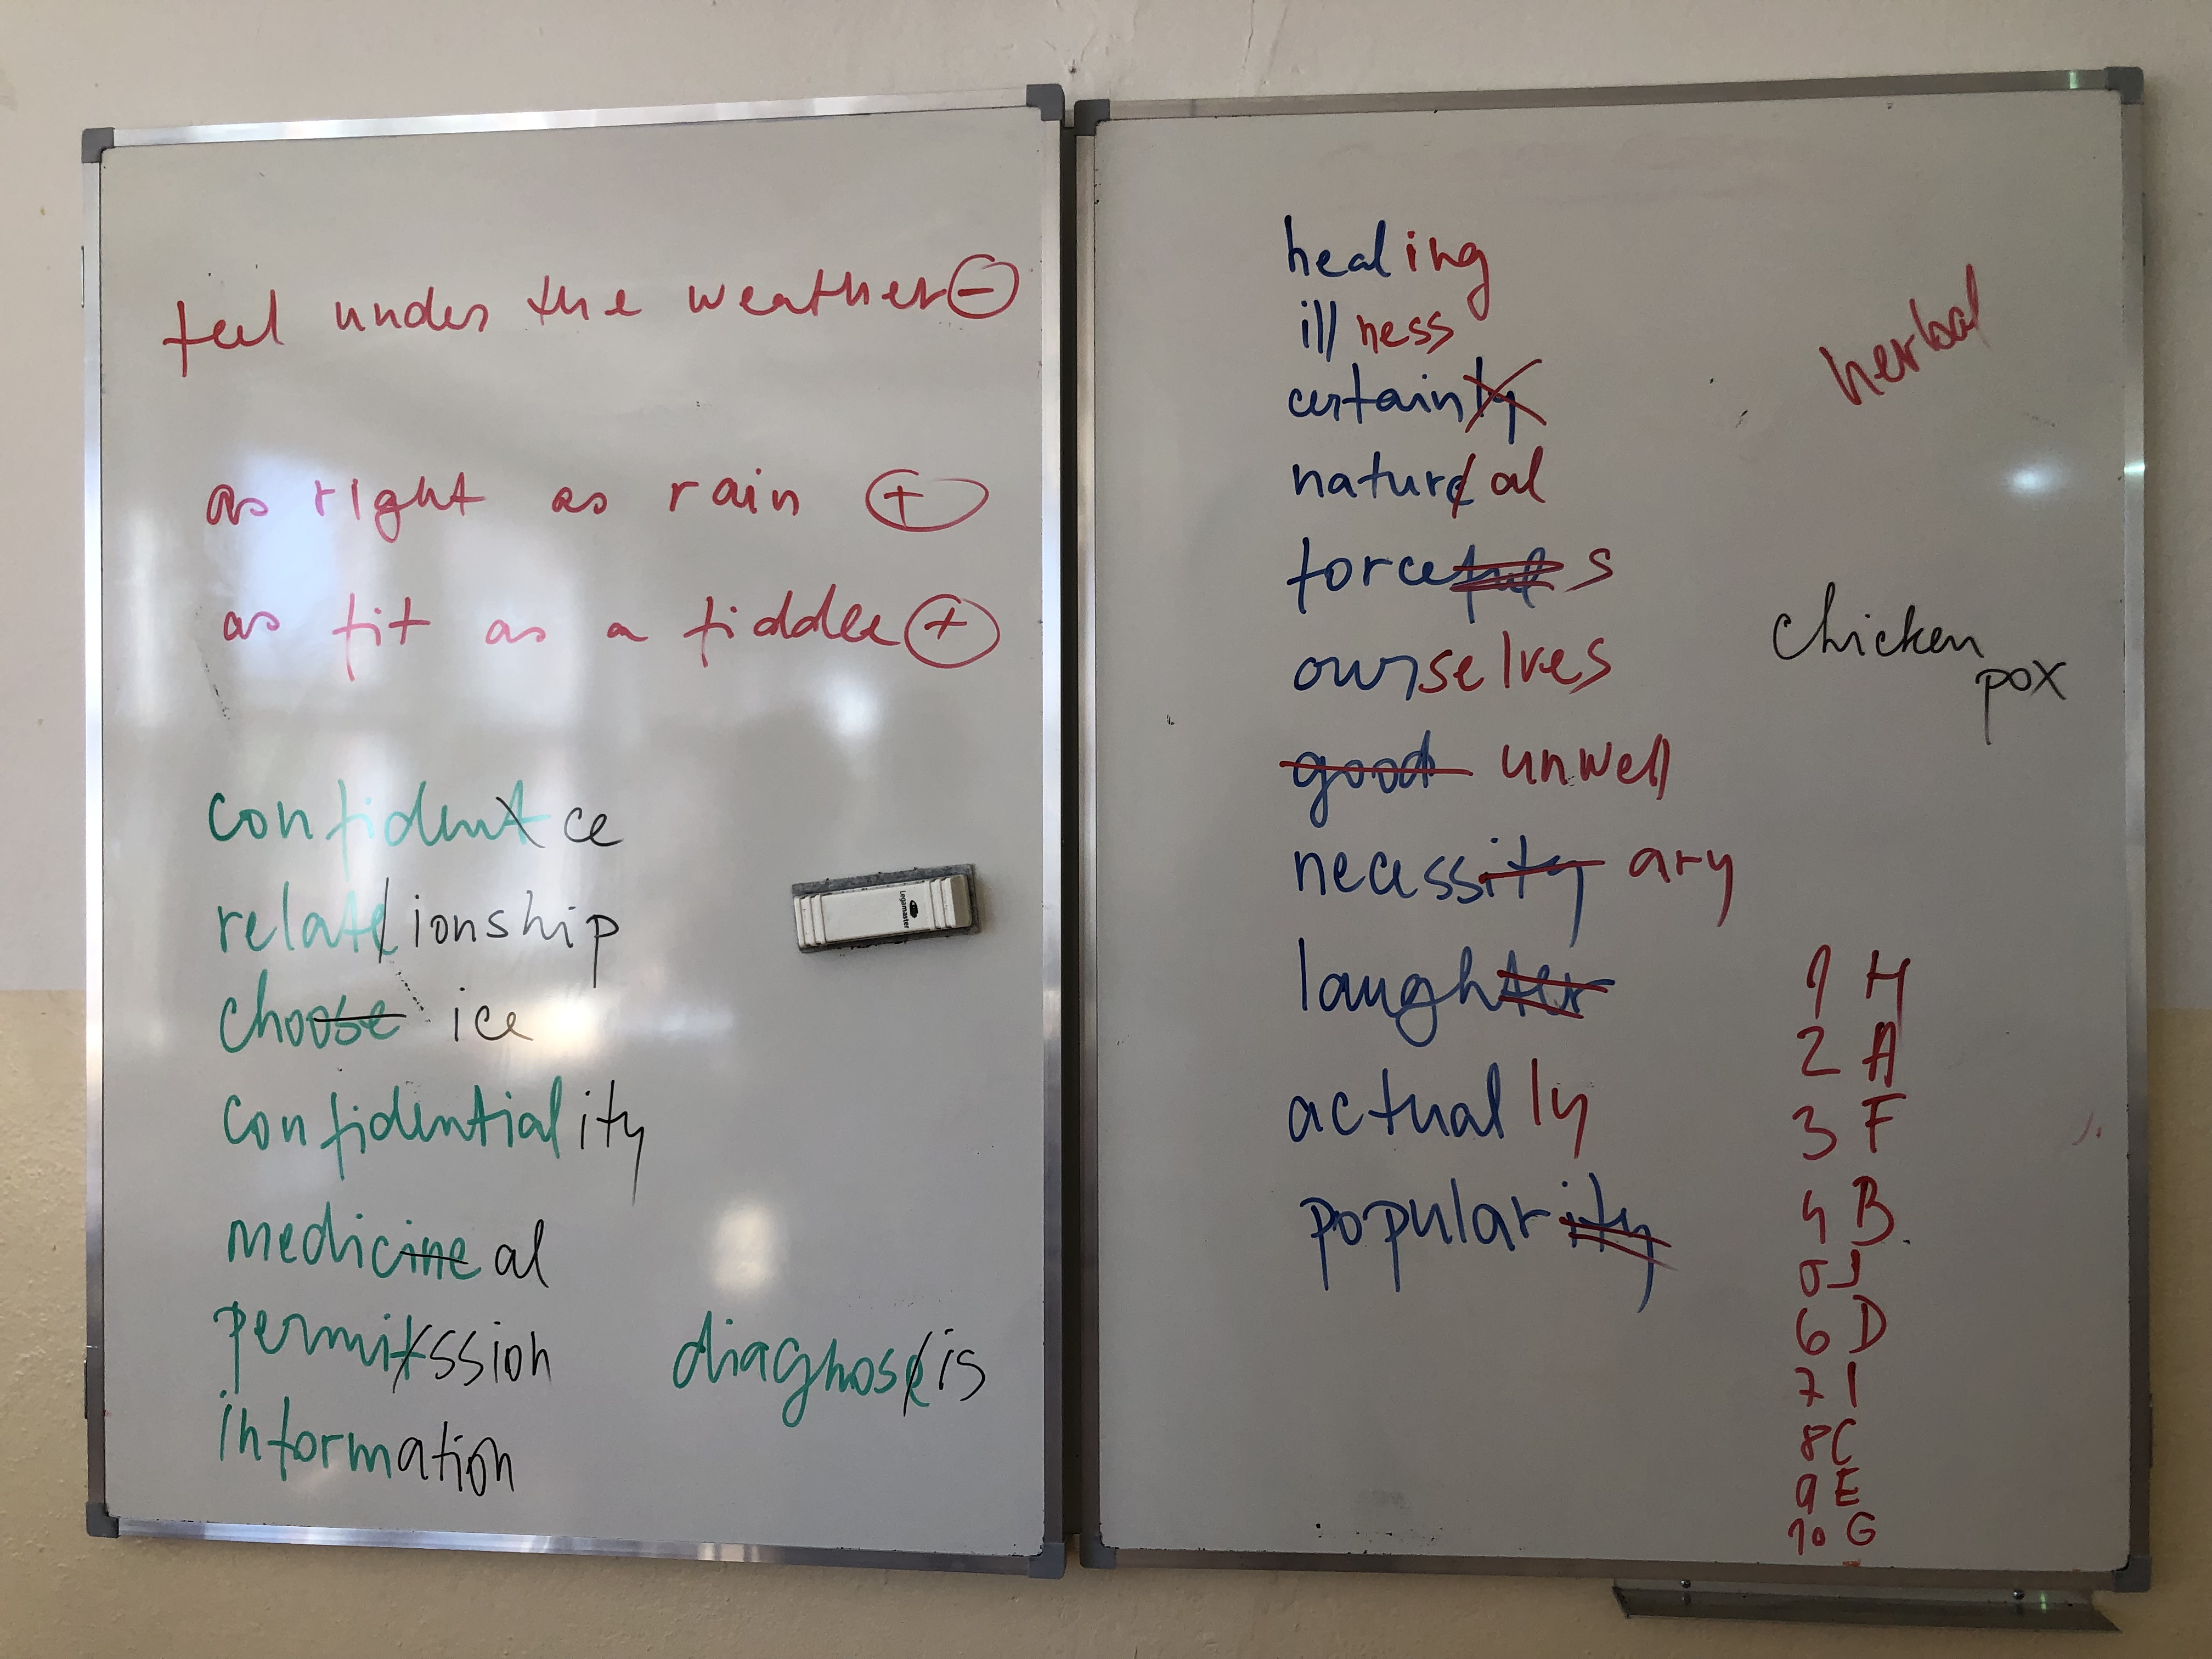 feel under the weather ⊖
as right as rain ⊕
as fit as a fiddle ⊕
confident ce
relate ionship
choose ice
confidentiality
medicine al
permit ssion
diagnose is
information
Legamaster
healing
illness
certainty
nature al
forceful s
ourselves
good unwell
necessity ary
laughter
actually
popularity
herbal
chicken
pox
1 H
2 A
3 F
4 B
5 J
6 D
7 I
8 C
9 E
10 G